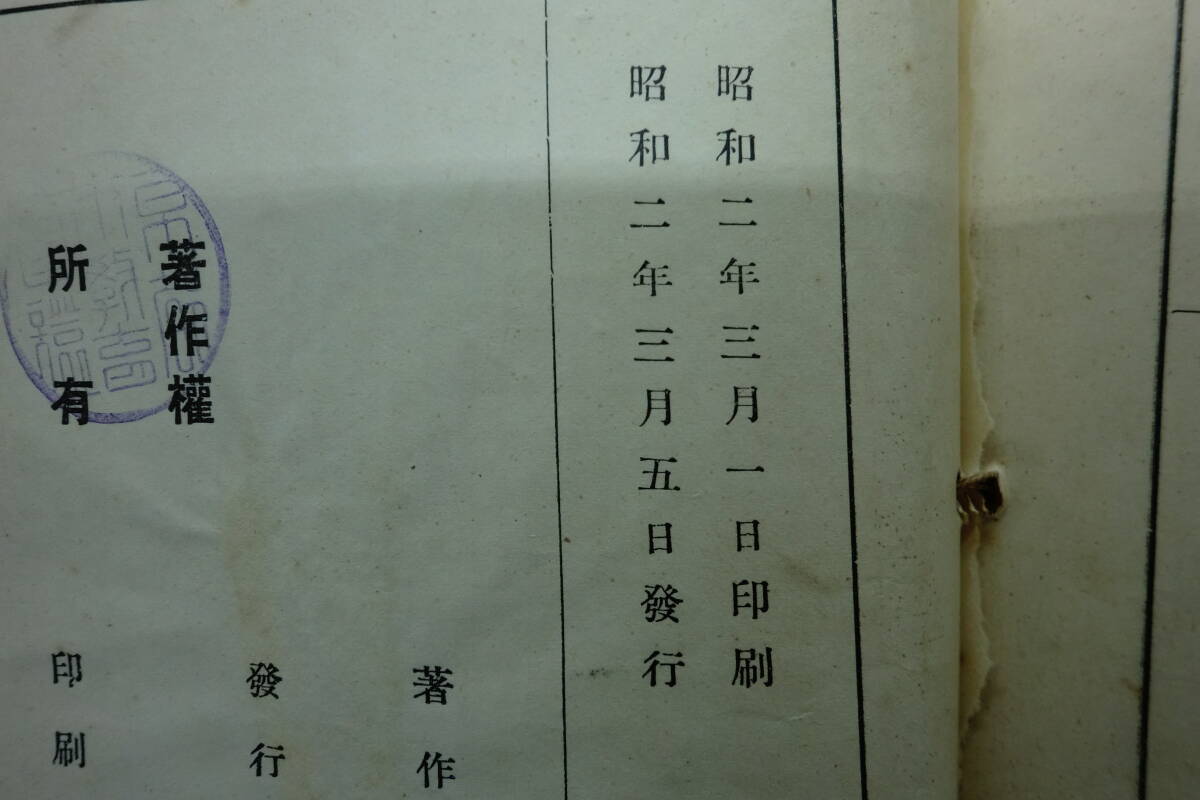 昭和二年三月一日印刷
昭和二年三月五日發行
著作
發行
著作權
所有
印刷